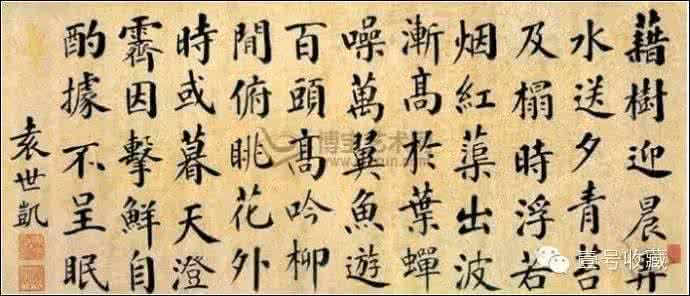 藉樹迎晨
水送夕青苔
及榻時浮若
烟紅蕖出波
漸高於葉蟬
噪萬翼魚遊
百頭高吟柳
間俯眺花外
時或暮天澄
霽因擊鮮自
酌據不呈眠
袁世凱
博宝艺术网
壹号收藏